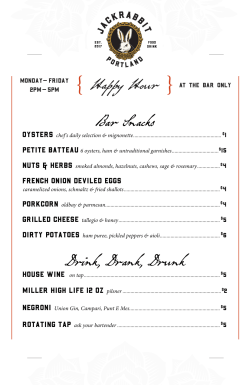 JACKRABBIT
EST. 2017
FOOD DRINK
PORTLAND
MONDAY–FRIDAY
2PM–5PM
{ Happy Hour }
AT THE BAR ONLY
Bar Snacks
OYSTERS chef's daily selection & mignonette $1
PETITE BATTEAU 6 oysters, ham & untraditional garnishes $15
NUTS & HERBS smoked almonds, hazelnuts, cashews, sage & rosemary $4
FRENCH ONION DEVILED EGGS
caramelized onions, schmaltz & fried shallots $4
PORKCORN oldbay & parmesan $4
GRILLED CHEESE tallegio & honey $5
DIRTY POTATOES ham puree, pickled peppers & aioli $6
Drink, Drank, Drunk
HOUSE WINE on tap $5
MILLER HIGH LIFE 12 OZ pilsner $2
NEGRONI Union Gin, Campari, Punt E Mes $5
ROTATING TAP ask your bartender $5